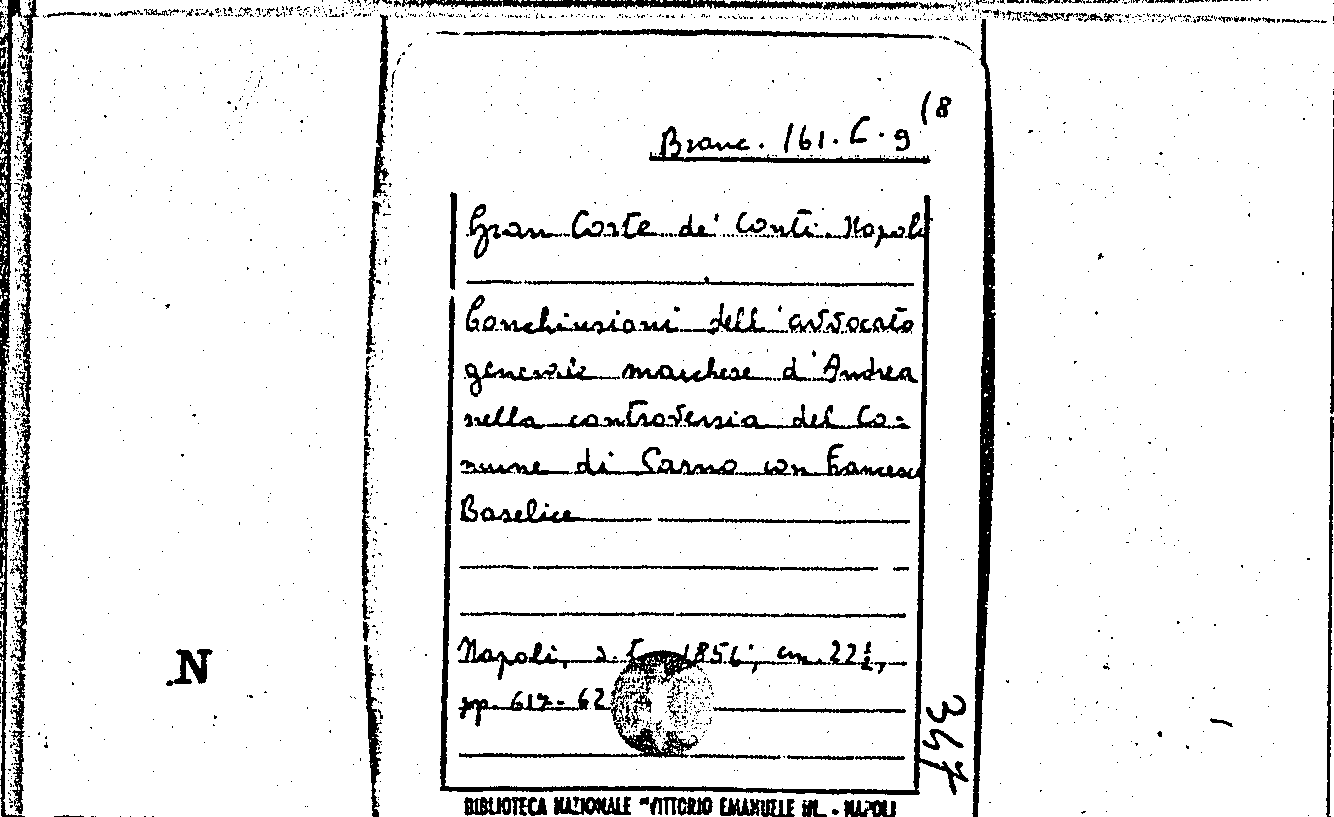 Branc. 161. C. 9 (8
Gran Corte de' Conti. Napoli
Conchiusioni dell'avvocato
generale marchese d'Andrea
nella controversia del Co=
mune di Sarno con Francesco
Baselice
Napoli, s. 1856, cm. 22½,
pp. 617-62
N
347
BIBLIOTECA NAZIONALE "VITTORIO EMANUELE III. - NAPOLI